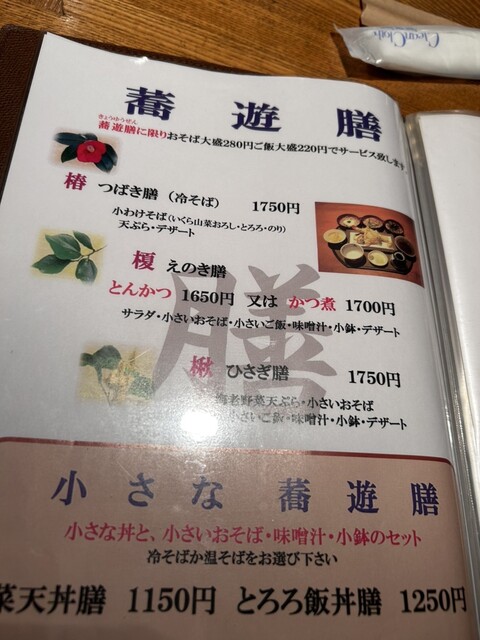 Clean Cloth
蕎遊膳
きょうゆうぜん
蕎遊膳に限りおそば大盛280円ご飯大盛220円でサービス致します
椿 つばき膳 (冷そば) 1750円
小わけそば(いくら山菜おろし・とろろ・のり)
天ぷら・デザート
榎 えのき膳
とんかつ 1650円 又は かつ煮 1700円
サラダ・小さいおそば・小さいご飯・味噌汁・小鉢・デザート
膳
楸 ひさぎ膳 1750円
海老野菜天ぷら・小さいおそば
小さいご飯・味噌汁・小鉢・デザート
小さな蕎遊膳
小さな丼と、小さいおそば・味噌汁・小鉢のセット
冷そばか温そばをお選び下さい
菜天丼膳 1150円 とろろ飯丼膳 1250円